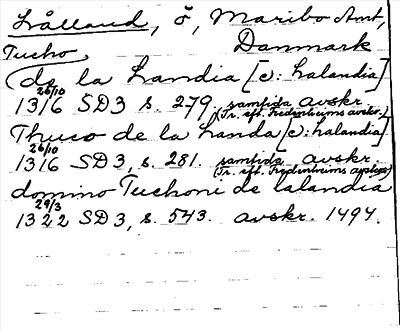 Lålland, ö, Maribo Amt,
Danmark
Tucho
(de la Landia [ɔ: Lalandia]
1316 26/10 SD3 s. 279 (samtida avskr.
(Tr. eft. Fredenheims avskr.)
Thuco de la Landa [ɔ: Lalandia].
1316 26/10 SD3, s. 281. samtida avskr.
(Tr. eft. Fredenheims avskr.)
domino Tuchoni de lalandia
1322 29/3 SD3, s. 543. avskr. 1494.